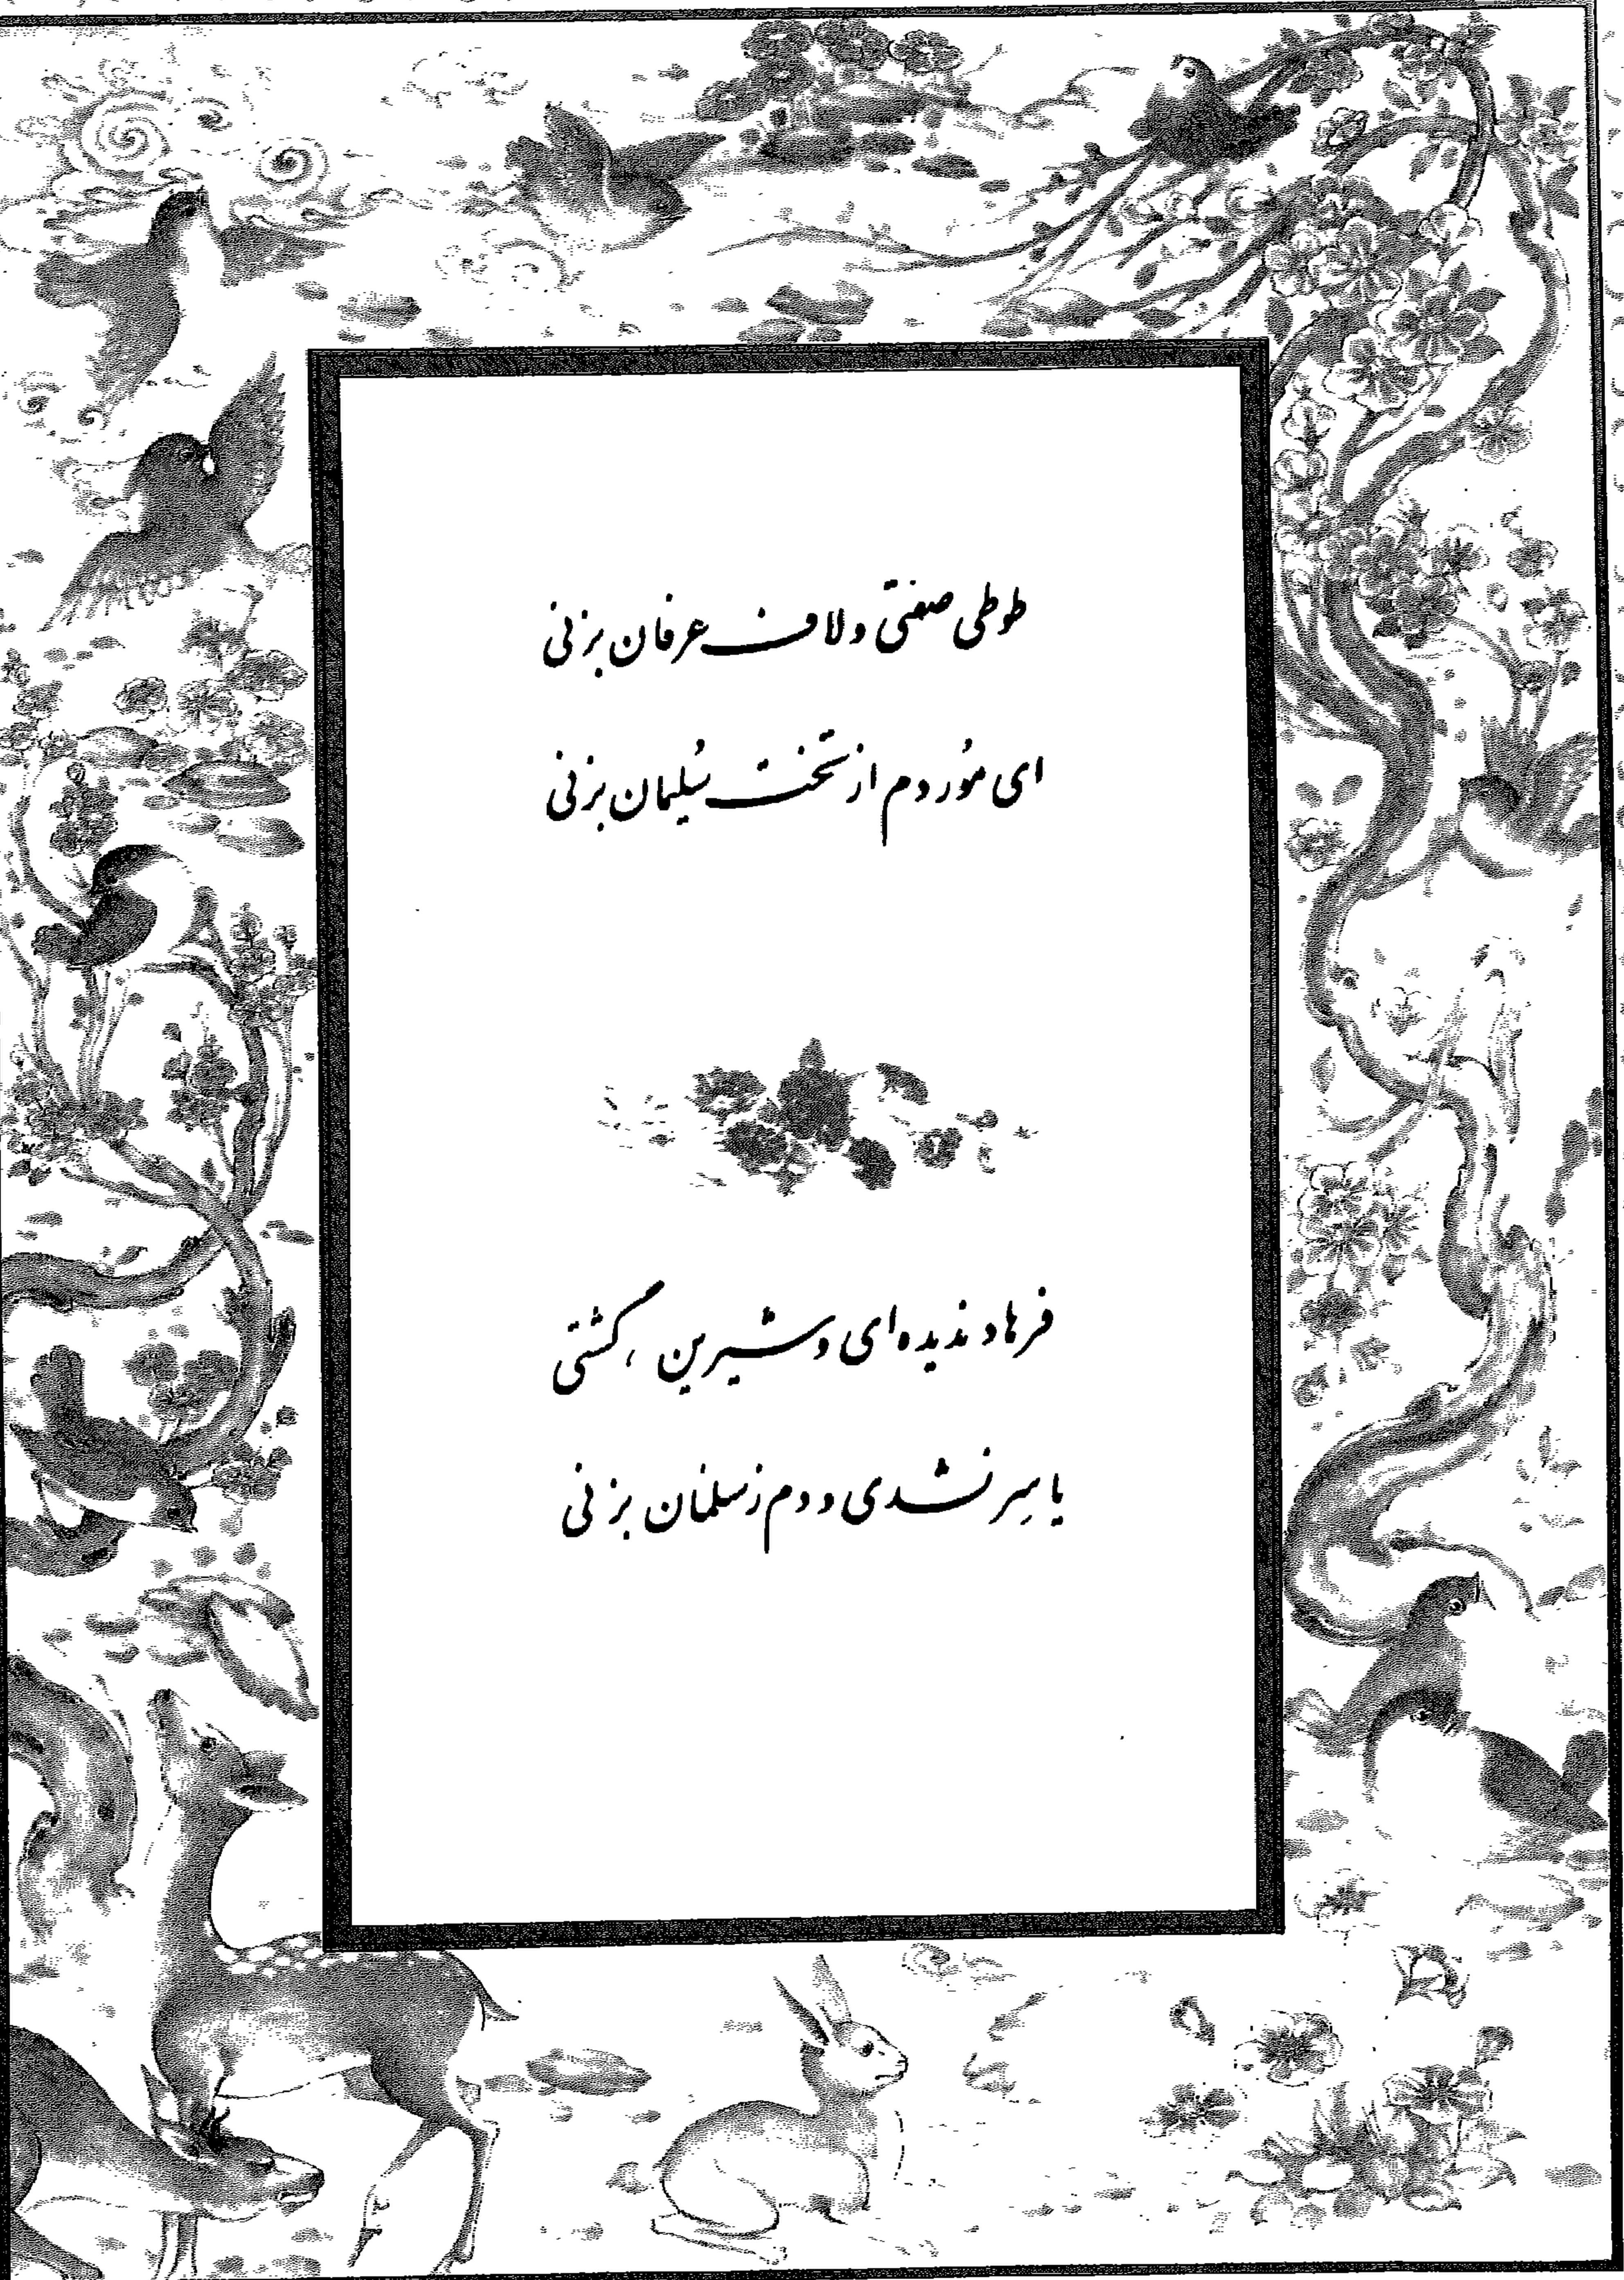 طوطی صفتی و لاف عرفان بزنی
ای مُور دم از تخت سُلیمان بزنی
فرهاد ندیده‌ای و شیرین گشتی
یاسِر نشدی و دم ز سلمان بزنی